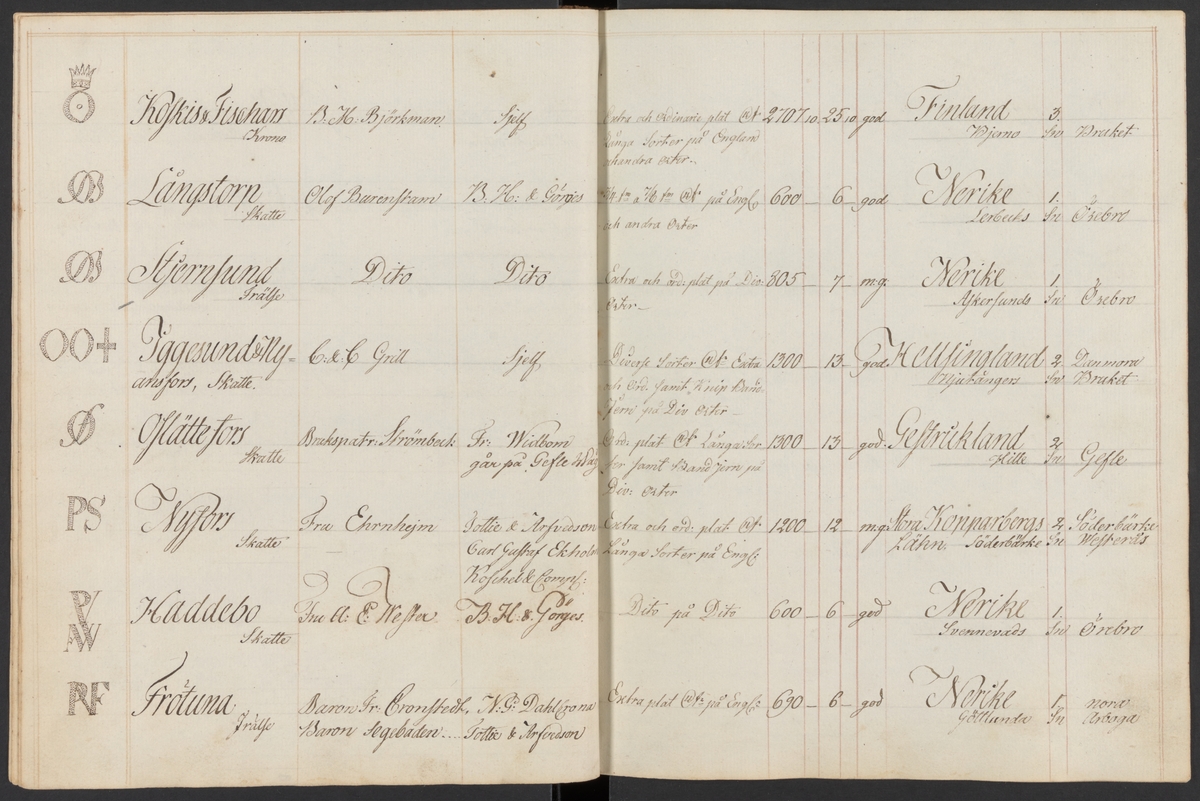 Koskis & Fischars B. H. Björkman. Sjelf Extra och Ordinarie plat &c 2707 10. 25 10 god Finland 3.
Krono Långa Sorter på England Bjerno Sn Bruket
och andra Orter.
DB Långstorp Olof Burenstam B. H: & Görges på Engl: 600 6 god Nerike 1.
Skatte och andra Orter Lerbecks Sn Örebro
DB Stjernsund Dito Dito Extra och ord: plat på Div: 805 7 m.g: Nerike 1.
Frälse Orter Askersunds Sn Örebro
OO+ Iggesund & Ny= C: & C Grill Sjelf Diverse Sorter &c Extra 1300 13. god Hellsingland 2 Danmora
ansfors, Skatte. och Ord. samt Knip Band Njutångers Sn Bruket
Jern på Div Orter
Oslättefors Brukspatr: Strömbeck Fr: Widbom Ord: plat &c Långa Sor 1300 13 god. Gestrikland 2
Skatte går på Gefle Wåg ter samt Bandjern på Hille Sn Gefle
Div: Orter
PS Nyfors Fru Ehrnhejm Tottie & Arfvedson Extra och ord: plat &c 1200 12 m.g: Stora Kopparbergs 2 Söderbärke
Skatte Carl Gustaf Ekholm Långa Sorter på Engl: Lähn. Söderbärke Sn Westerås
Koschel & Comp:
Haddebo Fru U: E: Wester B. H: & Görges. Dito på Dito 600 6 god Nerike 1.
AW Skatte Svennevads Sn Örebro
RF Frötuna Baron Fr: Cronstedt, N. G: Dahlcrona Extra plat &c på Engl: 690 6 god Nerike 1 nora
Frälse Baron Segebaden .... Tottie & Arfvedson Götlunda Sn Arboga